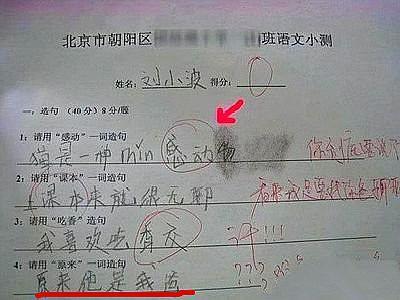 北京市朝阳区 班语文小测
姓名: 刘小波 得分: 0
一: 造句 (40分) 8分/题
1: 请用“感动”一词造句
猫是一种min感动物
你到底要说
2: 请用“课本”一词造句
课本来就很无聊
看来我是要找你
3: 请用“吃香”造句
我喜欢吃香蕉
汗!!!
4: 请用“原来”一词造句
原来他是我爸
???